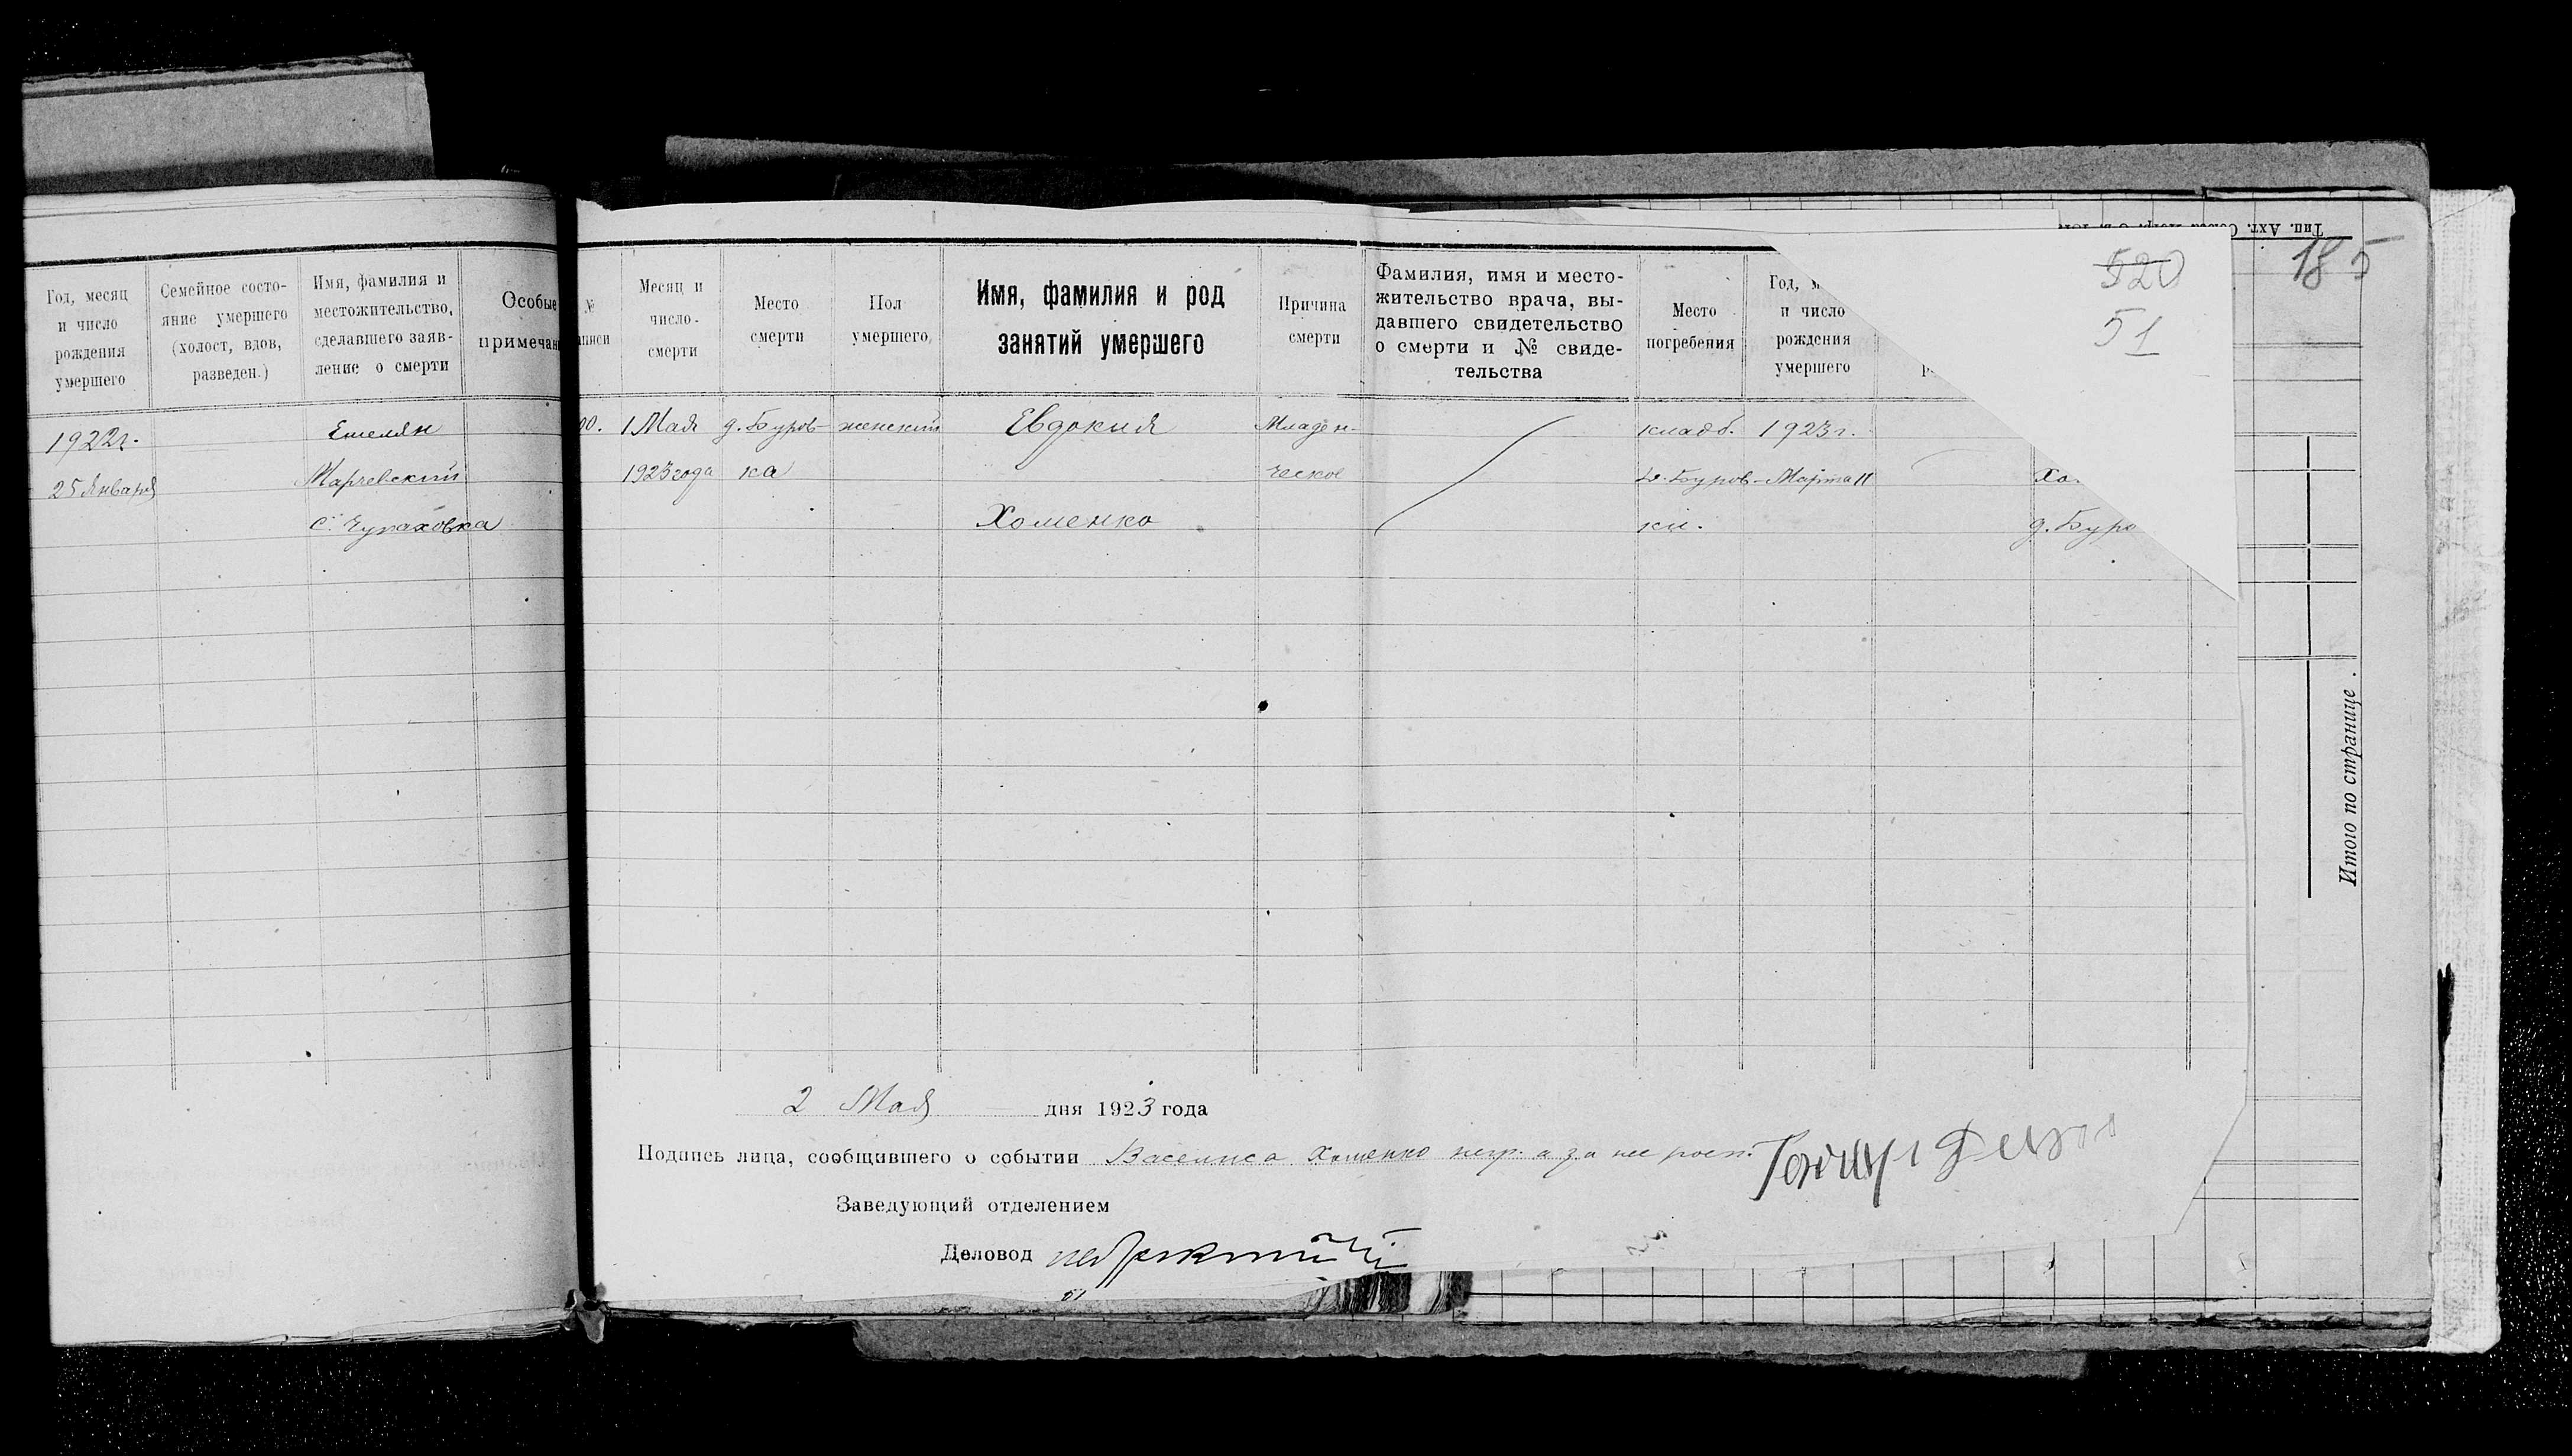 Год, месяц
и число
рождения
умершего
Семейное состо-
яние умершего
(холост, вдов,
разведен.)
Имя, фамилия и
местожительство,
сделавшего заяв-
ление о смерти
Особые
примечан
1922г.
25 Января
Емелян
Марчевский
с. Чупаховка
520
51
185
№
аписи
Месяц и
число
смерти
Место
смерти
Пол
умершего
Имя, фамилия и род
занятий умершего
Причина
смерти
Фамилия, имя и место-
жительство врача, вы-
давшего свидетельство
о смерти и № свиде-
тельства
Место
погребения
Год, м
и число
рождения
умершего
00. 1 Мая д. Буров- женский Евдокия Младен- кладб. 1923 г.
1923 года ка ческое д. Буров- Марта 11 Хо
Хоменко ки. д. Буро
2 Мая дня 1923 года
Подпись лица, сообщившего о событии Василиса Хоменко негр. а за нее росп.
Заведующий отделением
Деловод
Итого по странице .